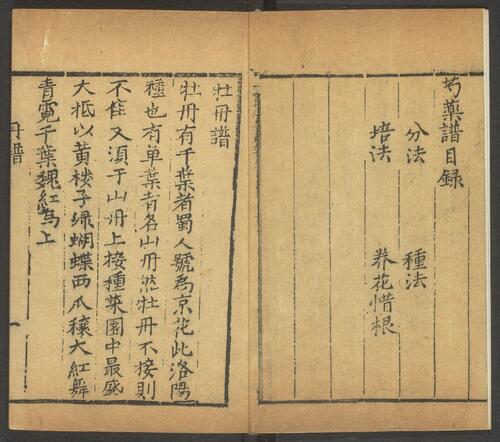 芍藥譜目錄
分法　種法
培法　养花惜根
牡丹譜
牡丹有千葉者蜀人號為京花此洛陽
種也有单葉者名山丹然牡丹不接則
不佳又須于山丹上接種菜園中最盛
大抵以黄楼子绿蝴蝶西爪穰大紅舞
青霓千葉魏紅為上
丹譜
一